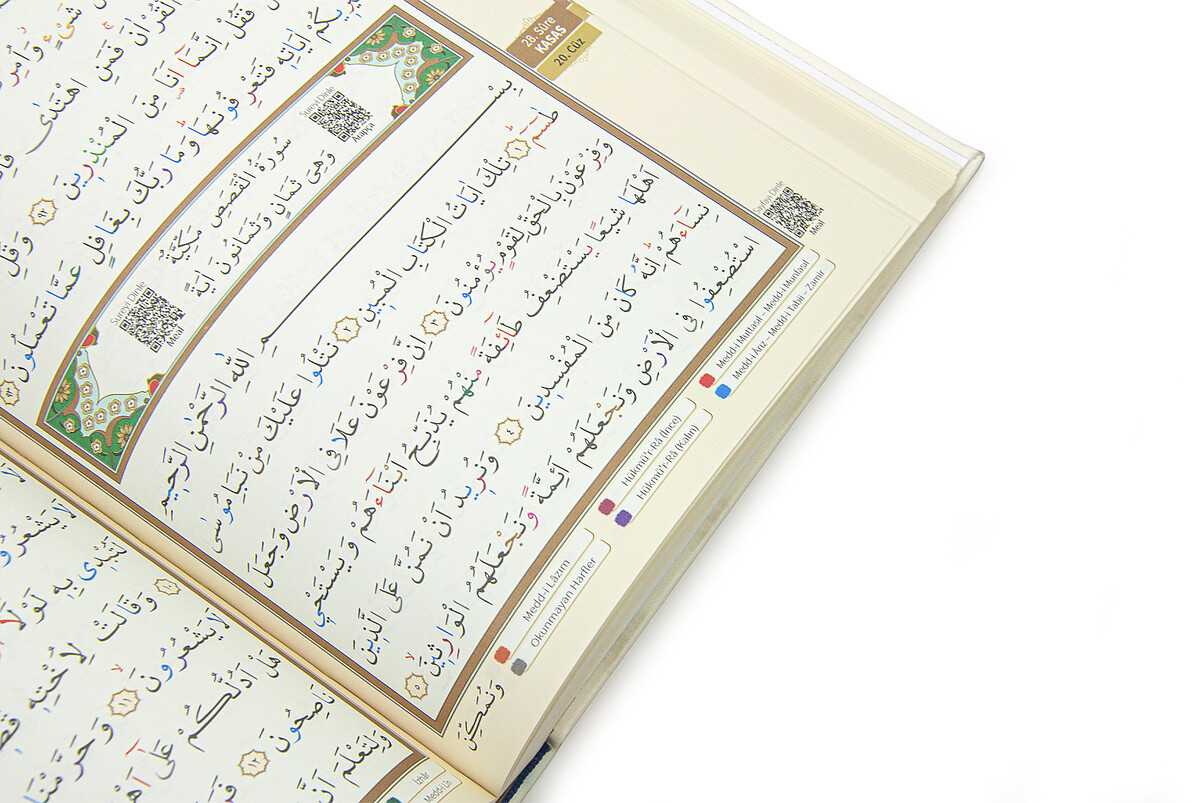 28. Sûre
KASAS
20. Cüz
شَيْءٍ
الْقُرْاٰنَ فَمَنِ اهْتَدٰى
فَقُلْ اِنَّمَٓا اَنَا۬ مِنَ الْمُنْذِر۪ينَ ﴿٩٢﴾ وَقُلِ
اٰيَاتِه۪ فَتَعْرِفُونَهَاۜ وَمَا رَبُّكَ بِغَافِلٍ عَمَّا تَعْمَلُونَ ﴿٩٣﴾
Sureyi Dinle
Arapça
سُورَةُ الْقَصَصِ مَكِّيَّةٌ
وَهِيَ ثَمَانٍ وَثَمَانُونَ اٰيَةً
Sureyi Dinle
Meal
بِسْمِ اللّٰهِ الرَّحْمٰنِ الرَّح۪يمِ
طٰسٓمٓۜ ﴿١﴾ تِلْكَ اٰيَاتُ الْكِتَابِ الْمُب۪ينِ ﴿٢﴾ نَتْلُوا عَلَيْكَ مِنْ نَبَاِ مُوسٰى
وَفِرْعَوْنَ بِالْحَقِّ لِقَوْمٍ يُؤْمِنُونَ ﴿٣﴾ اِنَّ فِرْعَوْنَ عَلَا فِي الْاَرْضِ وَجَعَلَ
اَهْلَهَا شِيَعًا يَسْتَضْعِفُ طَٓائِفَةً مِنْهُمْ يُذَبِّحُ اَبْنَٓاءَهُمْ وَيَسْتَحْي۪
نِسَٓاءَهُمْۜ اِنَّهُ كَانَ مِنَ الْمُفْسِد۪ينَ ﴿٤﴾ وَنُر۪يدُ اَنْ نَمُنَّ عَلَى الَّذ۪ينَ
اسْتُضْعِفُوا فِي الْاَرْضِ وَنَجْعَلَهُمْ اَئِمَّةً وَنَجْعَلَهُمُ الْوَارِث۪ينَۙ ﴿٥﴾
وَنُمَكِّنَ
Sayfayı Dinle
Meal
Medd-i Muttasıl – Medd-i Munfasıl
Medd-i Arız – Medd-i Tabii – Zamir
Hükmü'r-Râ (İnce)
Hükmü'r-Râ (Kalın)
Medd-i Lâzım
Okunmayan Harfler
لَا يَشْعُرُونَ
لَتُبْد۪ي بِه۪ لَوْلَٓا
﴿١٠﴾ وَقَالَتْ لِاُخْتِه۪
لَا يَشْعُرُونَۙ ﴿١١﴾ وَحَرَّمْنَا
هَلْ اَدُلُّكُمْ عَلٰٓى
نَاصِحُونَ ﴿١٢﴾
وَلِتَعْلَمَ اَنَّ
İzhâr
Medd-i Lîn